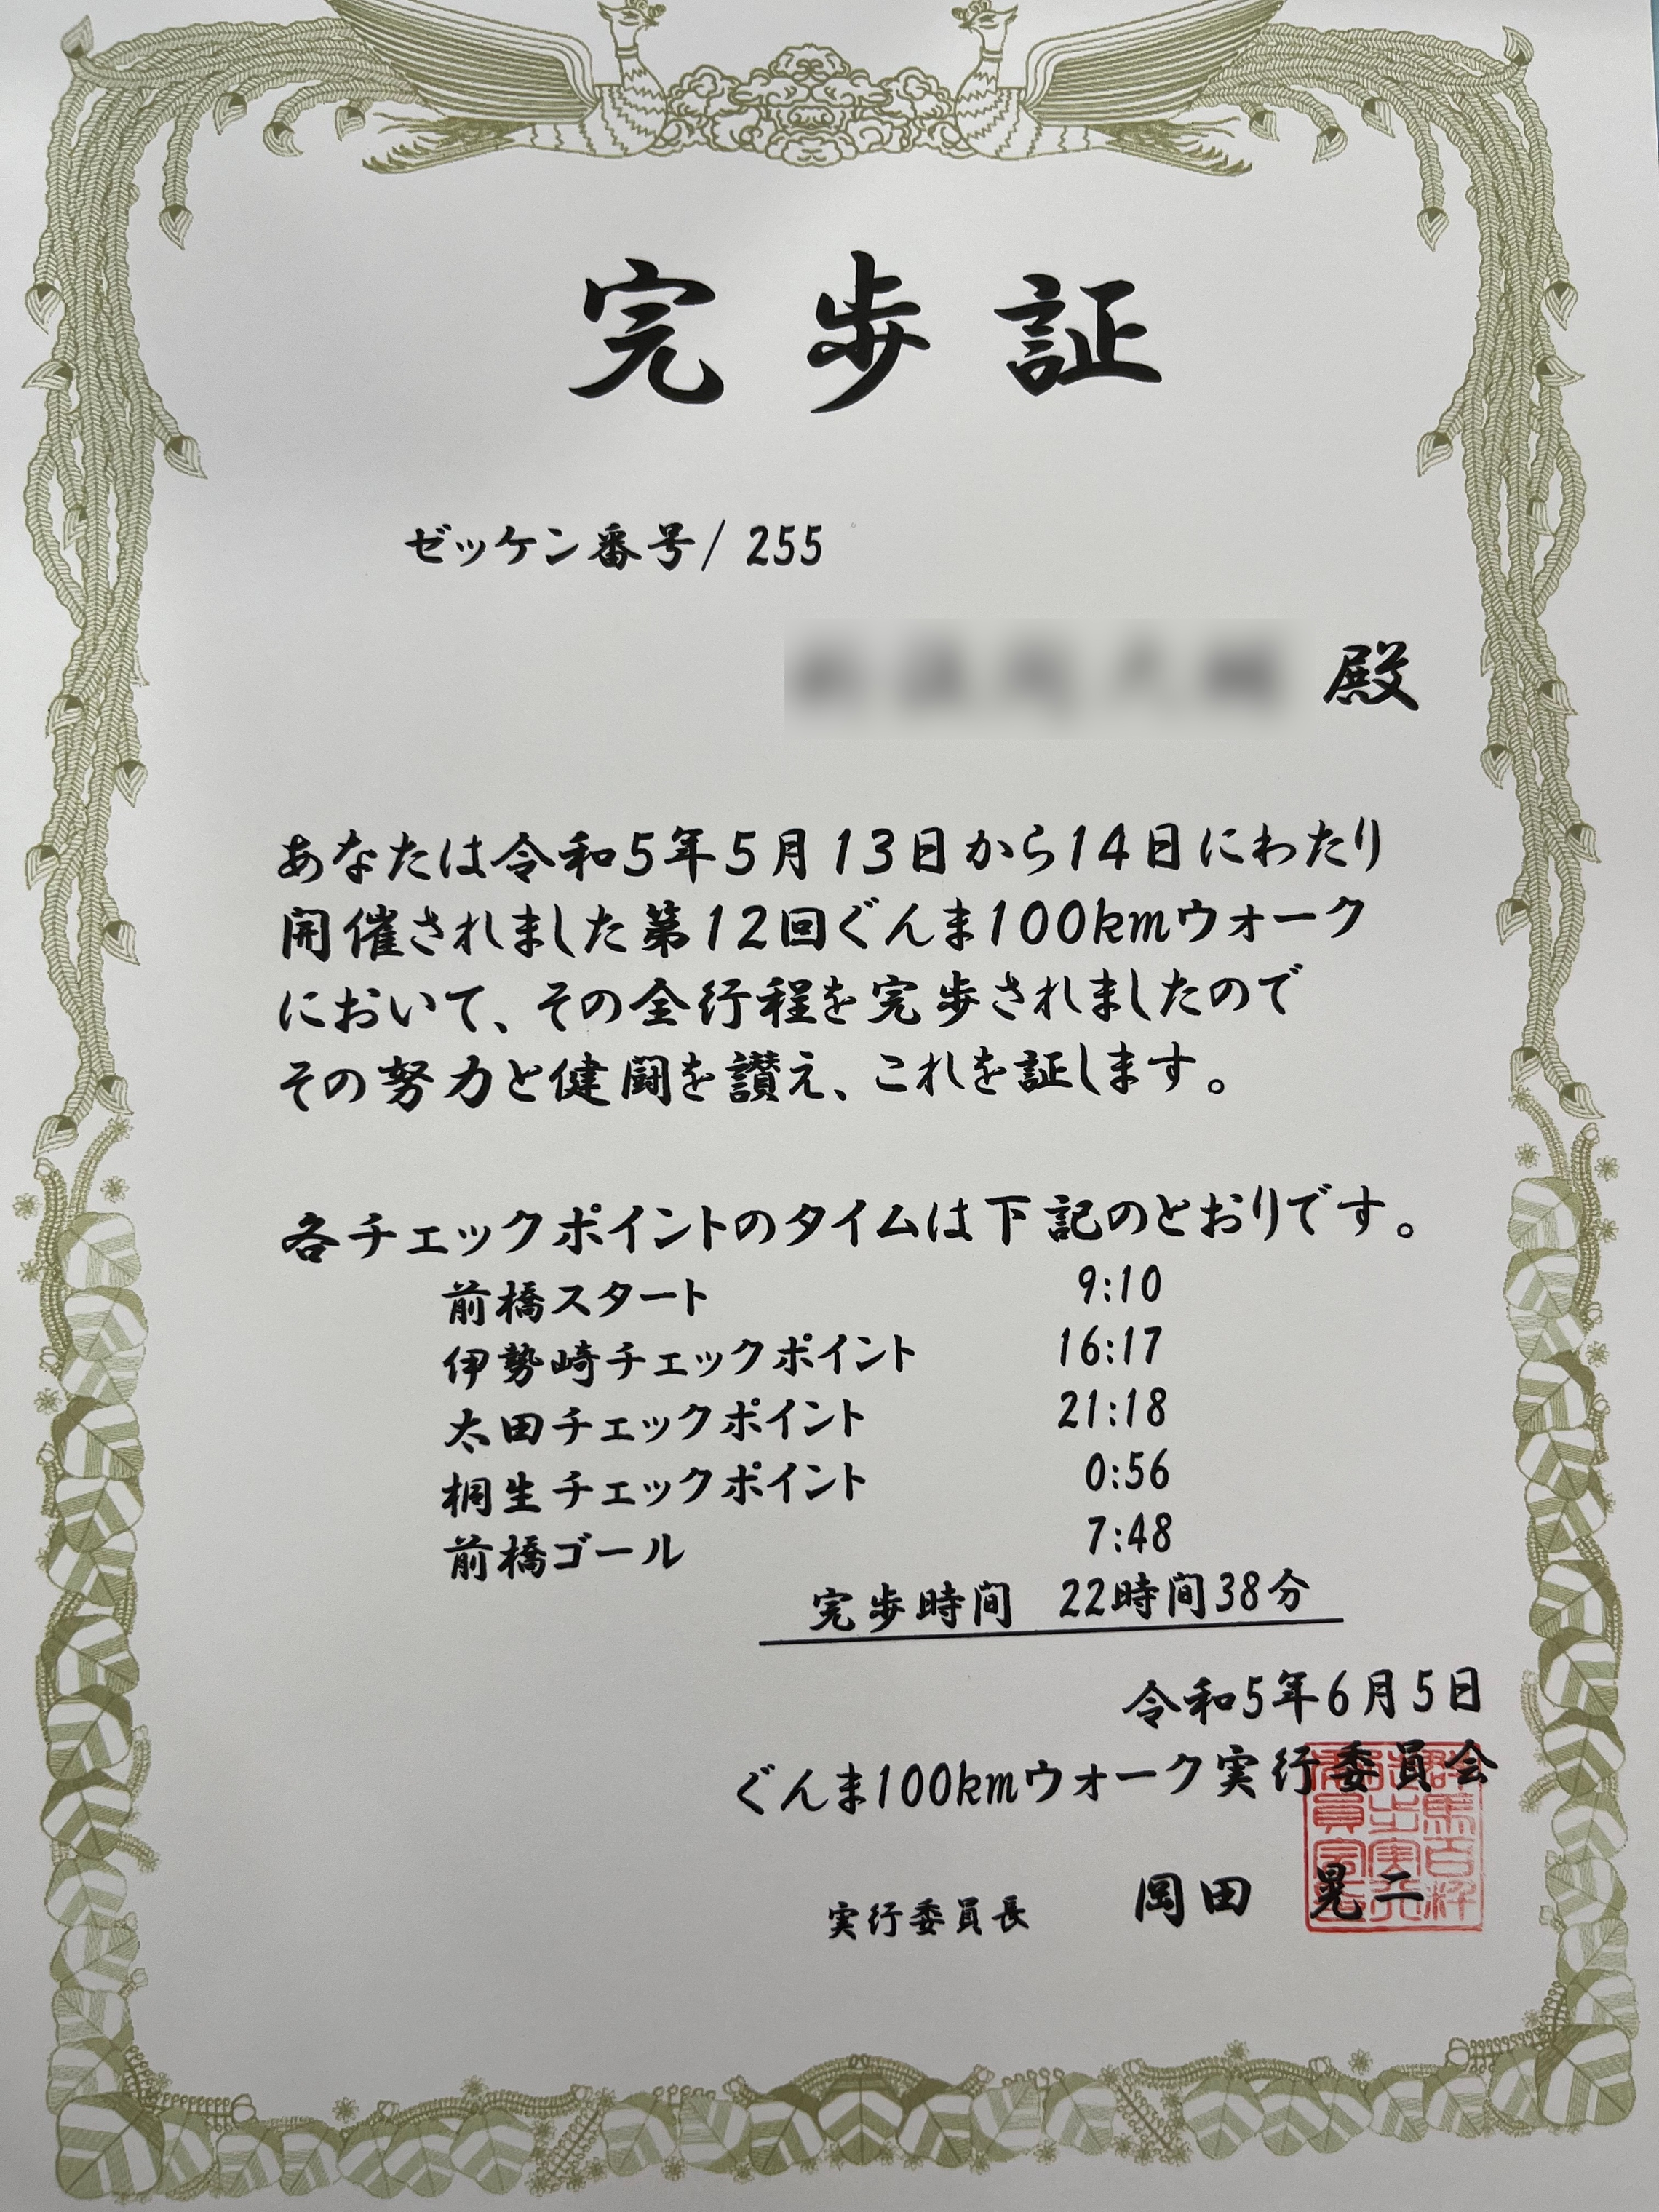 完歩証
ゼッケン番号/ 255
殿
あなたは令和5年5月13日から14日にわたり
開催されました第12回ぐんま100kmウォーク
において、その全行程を完歩されましたので
その努力と健闘を讃え、これを証します。
各チェックポイントのタイムは下記のとおりです。
前橋スタート 9:10
伊勢崎チェックポイント 16:17
太田チェックポイント 21:18
桐生チェックポイント 0:56
前橋ゴール 7:48
完歩時間 22時間38分
令和5年6月5日
ぐんま100kmウォーク実行委員会
実行委員長 岡田 晃二